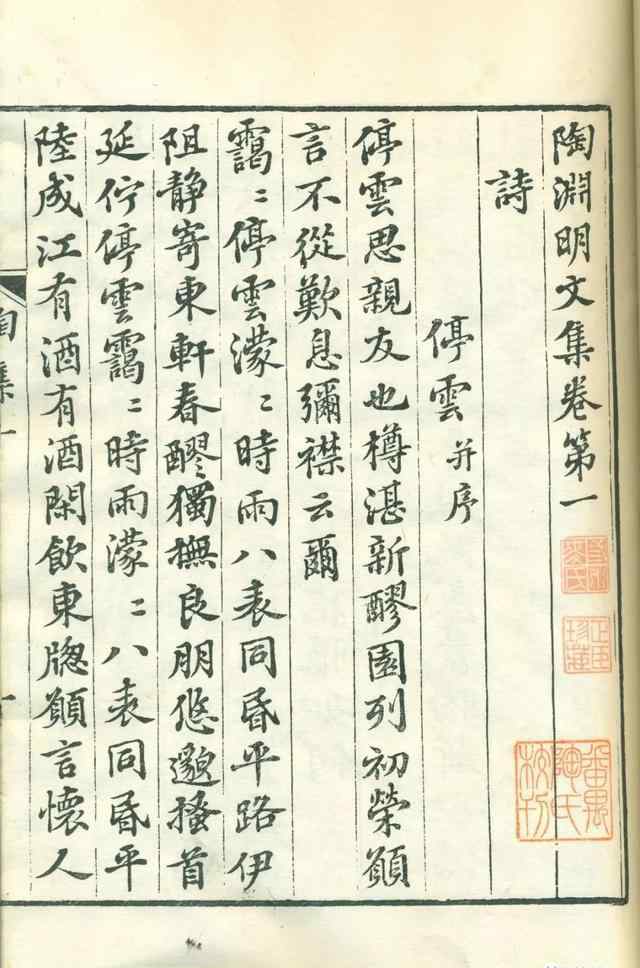 陶淵明文集卷第一
番禺
陶氏
校刊
詩
停雲 并序
停雲思親友也樽湛新醪園列初榮願
言不從歎息彌襟云爾
靄〻停雲濛〻時雨八表同昏平路伊
阻靜寄東軒春醪獨撫良朋悠邈搔首
延佇停雲靄〻時雨濛〻八表同昏平
陸成江有酒有酒閑飲東牕願言懷人